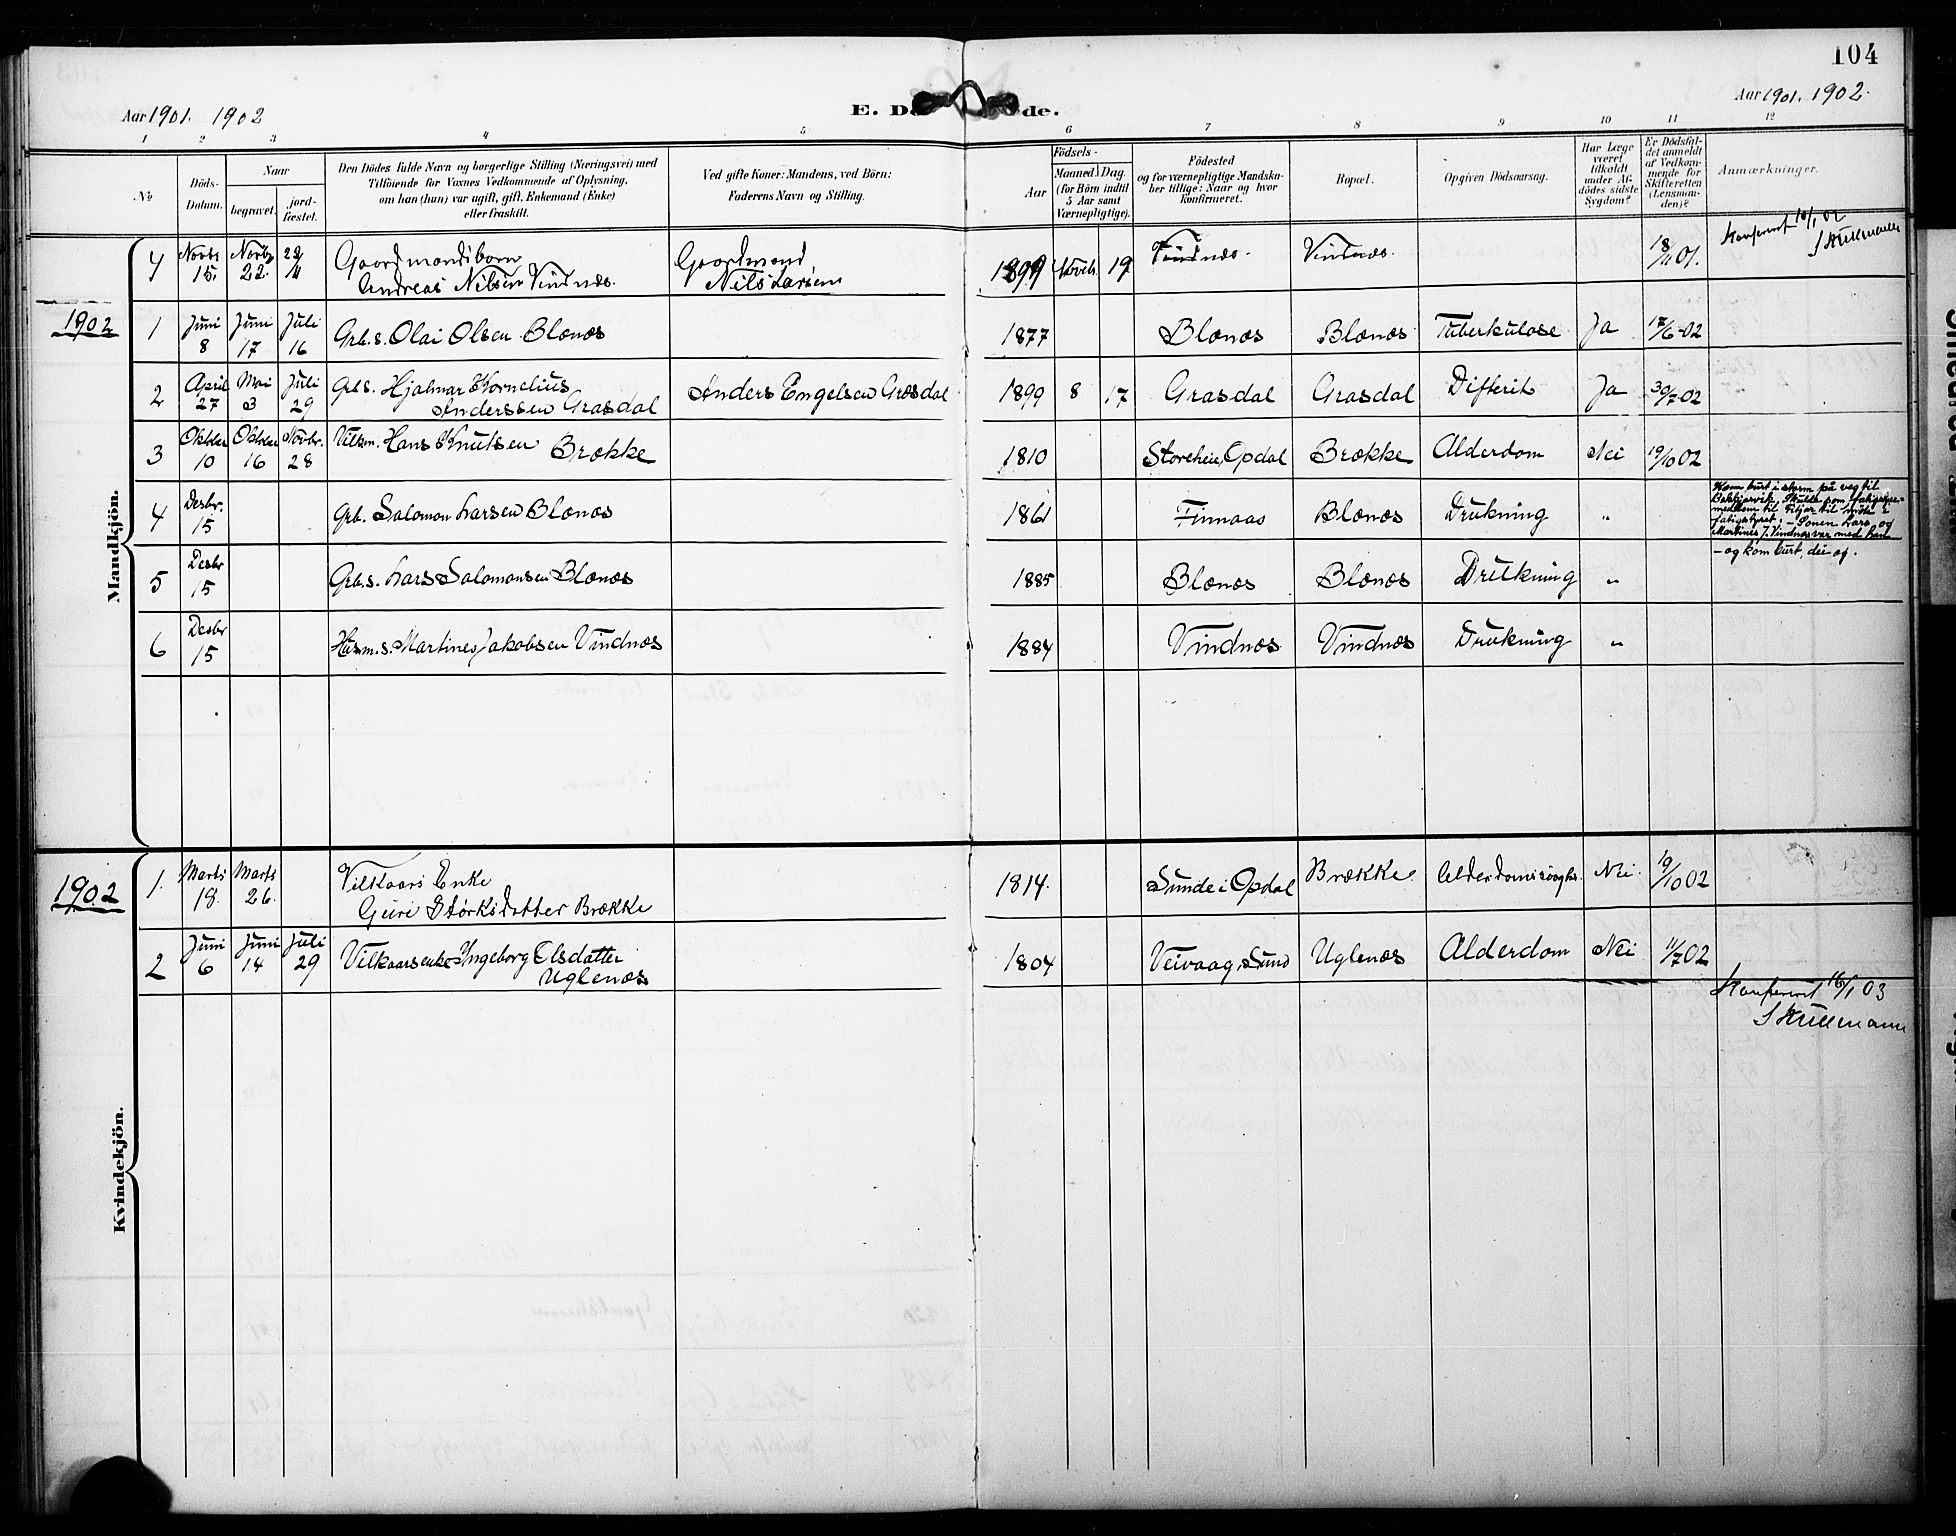 104
Aar 1901. 1902
E. Dö de.
Aar 1901. 1902.
1 2 3 4 5 6 7 8 9 10 11 12
No
Döds-Datum.
Naar
begravet.
jord-fæstet.
Den Dödes fulde Navn og borgerlige Stilling (Næringsvei) med
Tilföiende for Voxnes Vedkommende af Oplysning,
om han (hun) var ugift, gift, Enkemand (Enke)
eller fraskilt.
Ved gifte Koner: Mandens, ved Börn:
Faderens Navn og Stilling.
Födsels-
Aar
Maaned. Dag.
(for Börn indtil
5 Aar samt
Værnepligtige).
Födested
og for værnepligtige Mandska-
ber tillige: Naar og hvor
konfirmeret.
Bopæl.
Opgiven Dödsaarsag.
Har Læge
været
tilkaldt
under Af-
dödes sidste
Sygdom?
Er Dödsfal-
det anmeldt
af Vedkom-
mende for
Skifteretten
(Lensman-
den)?
Anmærkninger.
Mandkjön.
7 Novbr 15. Novbr 22. 22/11 Gaardmandsbarn Andreas Nilsen Vindnæs. Gaardmand Nils Larsen 1899 Novbr. 19 Vindnæs. Vindnæs. 18/11 01. Konferert 10/1 02
1902
1 Juni 8 Juni 17 Juli 16 Grb.s. Olai Olsen Blænæs 1877 Blænæs Blænæs Tuberkulose Ja 17/6-02
2 April 27 Mai 3 Juli 29 Grb s. Hjalmar Kornelius Anderssen Grasdal Anders Engelsen Græsdal 1899 8 17 Grasdal Grasdal Difterit Ja 30/7-02
3 Oktober 10 Oktober 16 Novbr. 28 Vilkm. Hans Knutsen Brække 1810 Storeheie, Opdal Brække Alderdom Nei 19/10 02
4 Desbr. 15 Grb. Salomon Larsen Blænæs 1861 Finnaas Blænæs Drukning „
Kom burt i storm på veg til
Bekkjarvik. Skulde som fatigstyre-
medlem til Fitjar til møte i
fatigstyret. – Sonen Lars og
Martines J. Vindnæs var med han
– og kom burt, dei og.
5 Desbr 15 Grb.s. Lars Salomonsen Blænæs 1885 Blænæs Blænæs Drukning „
6 Desbr 15 Husm.s. Martines Jakobsen Vindnæs 1884 Vindnæs Vindnæs Drukning „
Kvindekjön.
1902
1. Marts 18. Marts 26. Vilkaars Enke Guri Størksdatter Brække 1814. Sunde i Opdal Brække. Alderdomssvaghd. Nei. 19/10 02
2 Juni 6 Juni 14 Juli 29 Vilkaarsenke Ingeborg Elsdatter Uglenæs 1804 Veivaag, Sund Uglenæs Alderdom Nei 11/7 02
Konferert 16/1 03